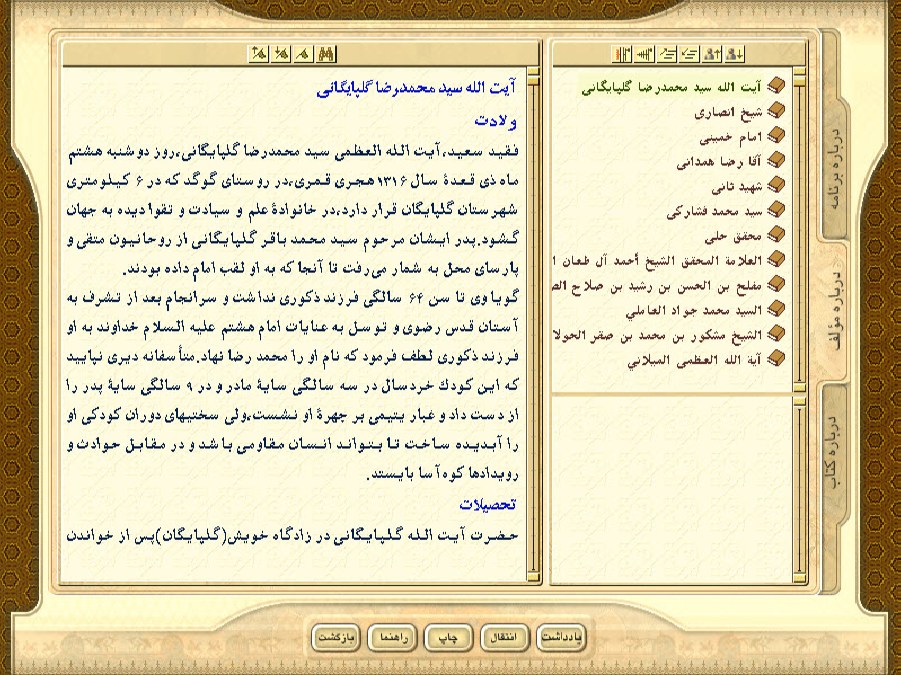 آیت الله سید محمدرضا گلپایگانی
شیخ انصاری
امام خمینی
آقا رضا همدانی
شهید ثانی
سید محمد فشارکی
محقق حلی
العلامة المحقق الشیخ أحمد آل طعان ا
مفلح بن الحسن بن رشید بن صلاح الص
السید محمد جواد العاملي
الشیخ مشکور بن محمد بن صقر الحولا
آیة الله العظمی المیلاني
درباره برنامه
درباره مؤلف
درباره کتاب
آیت الله سید محمدرضا گلپایگانی
ولادت
فقید سعید، آیت الله العظمی سید محمدرضا گلپایگانی،روز دوشنبه هشتم
ماه ذی قعدۀ سال ۱۳۱۶هجری قمری،در روستای گوگد که در ۶ کیلومتری
شهرستان گلپایگان قرار دارد،در خانوادۀ علم و سیادت و تقوا دیده به جهان
گشود.پدر ایشان مرحوم سید محمد باقر گلپایگانی از روحانیون متقی و
پارسای محل به شمار می‌رفت تا آنجا که به او لقب امام داده بودند.
گویا وی تا سن ۶۴ سالگی فرزند ذکوری نداشت و سرانجام بعد از تشرف به
آستان قدس رضوی و توسل به عنایات امام هشتم علیه السلام خداوند به او
فرزند ذکوری لطف فرمود که نام او را محمد رضا نهاد.متأسفانه دیری نپایید
که این کودك خردسال در سه سالگی سایۀ مادر و در ۹ سالگی سایۀ پدر را
از دست داد و غبار یتیمی بر چهرۀ او نشست،ولی سختیهای دوران کودکی او
را آبدیده ساخت تا بتواند انسان مقاومی باشد و در مقابل حوادث و
رویدادها کوه آسا بایستد.
تحصیلات
حضرت آیت الله گلپایگانی در زادگاه خویش(گلپایگان)پس از خواندن
یادداشت
انتقال
چاپ
راهنما
بازگشت